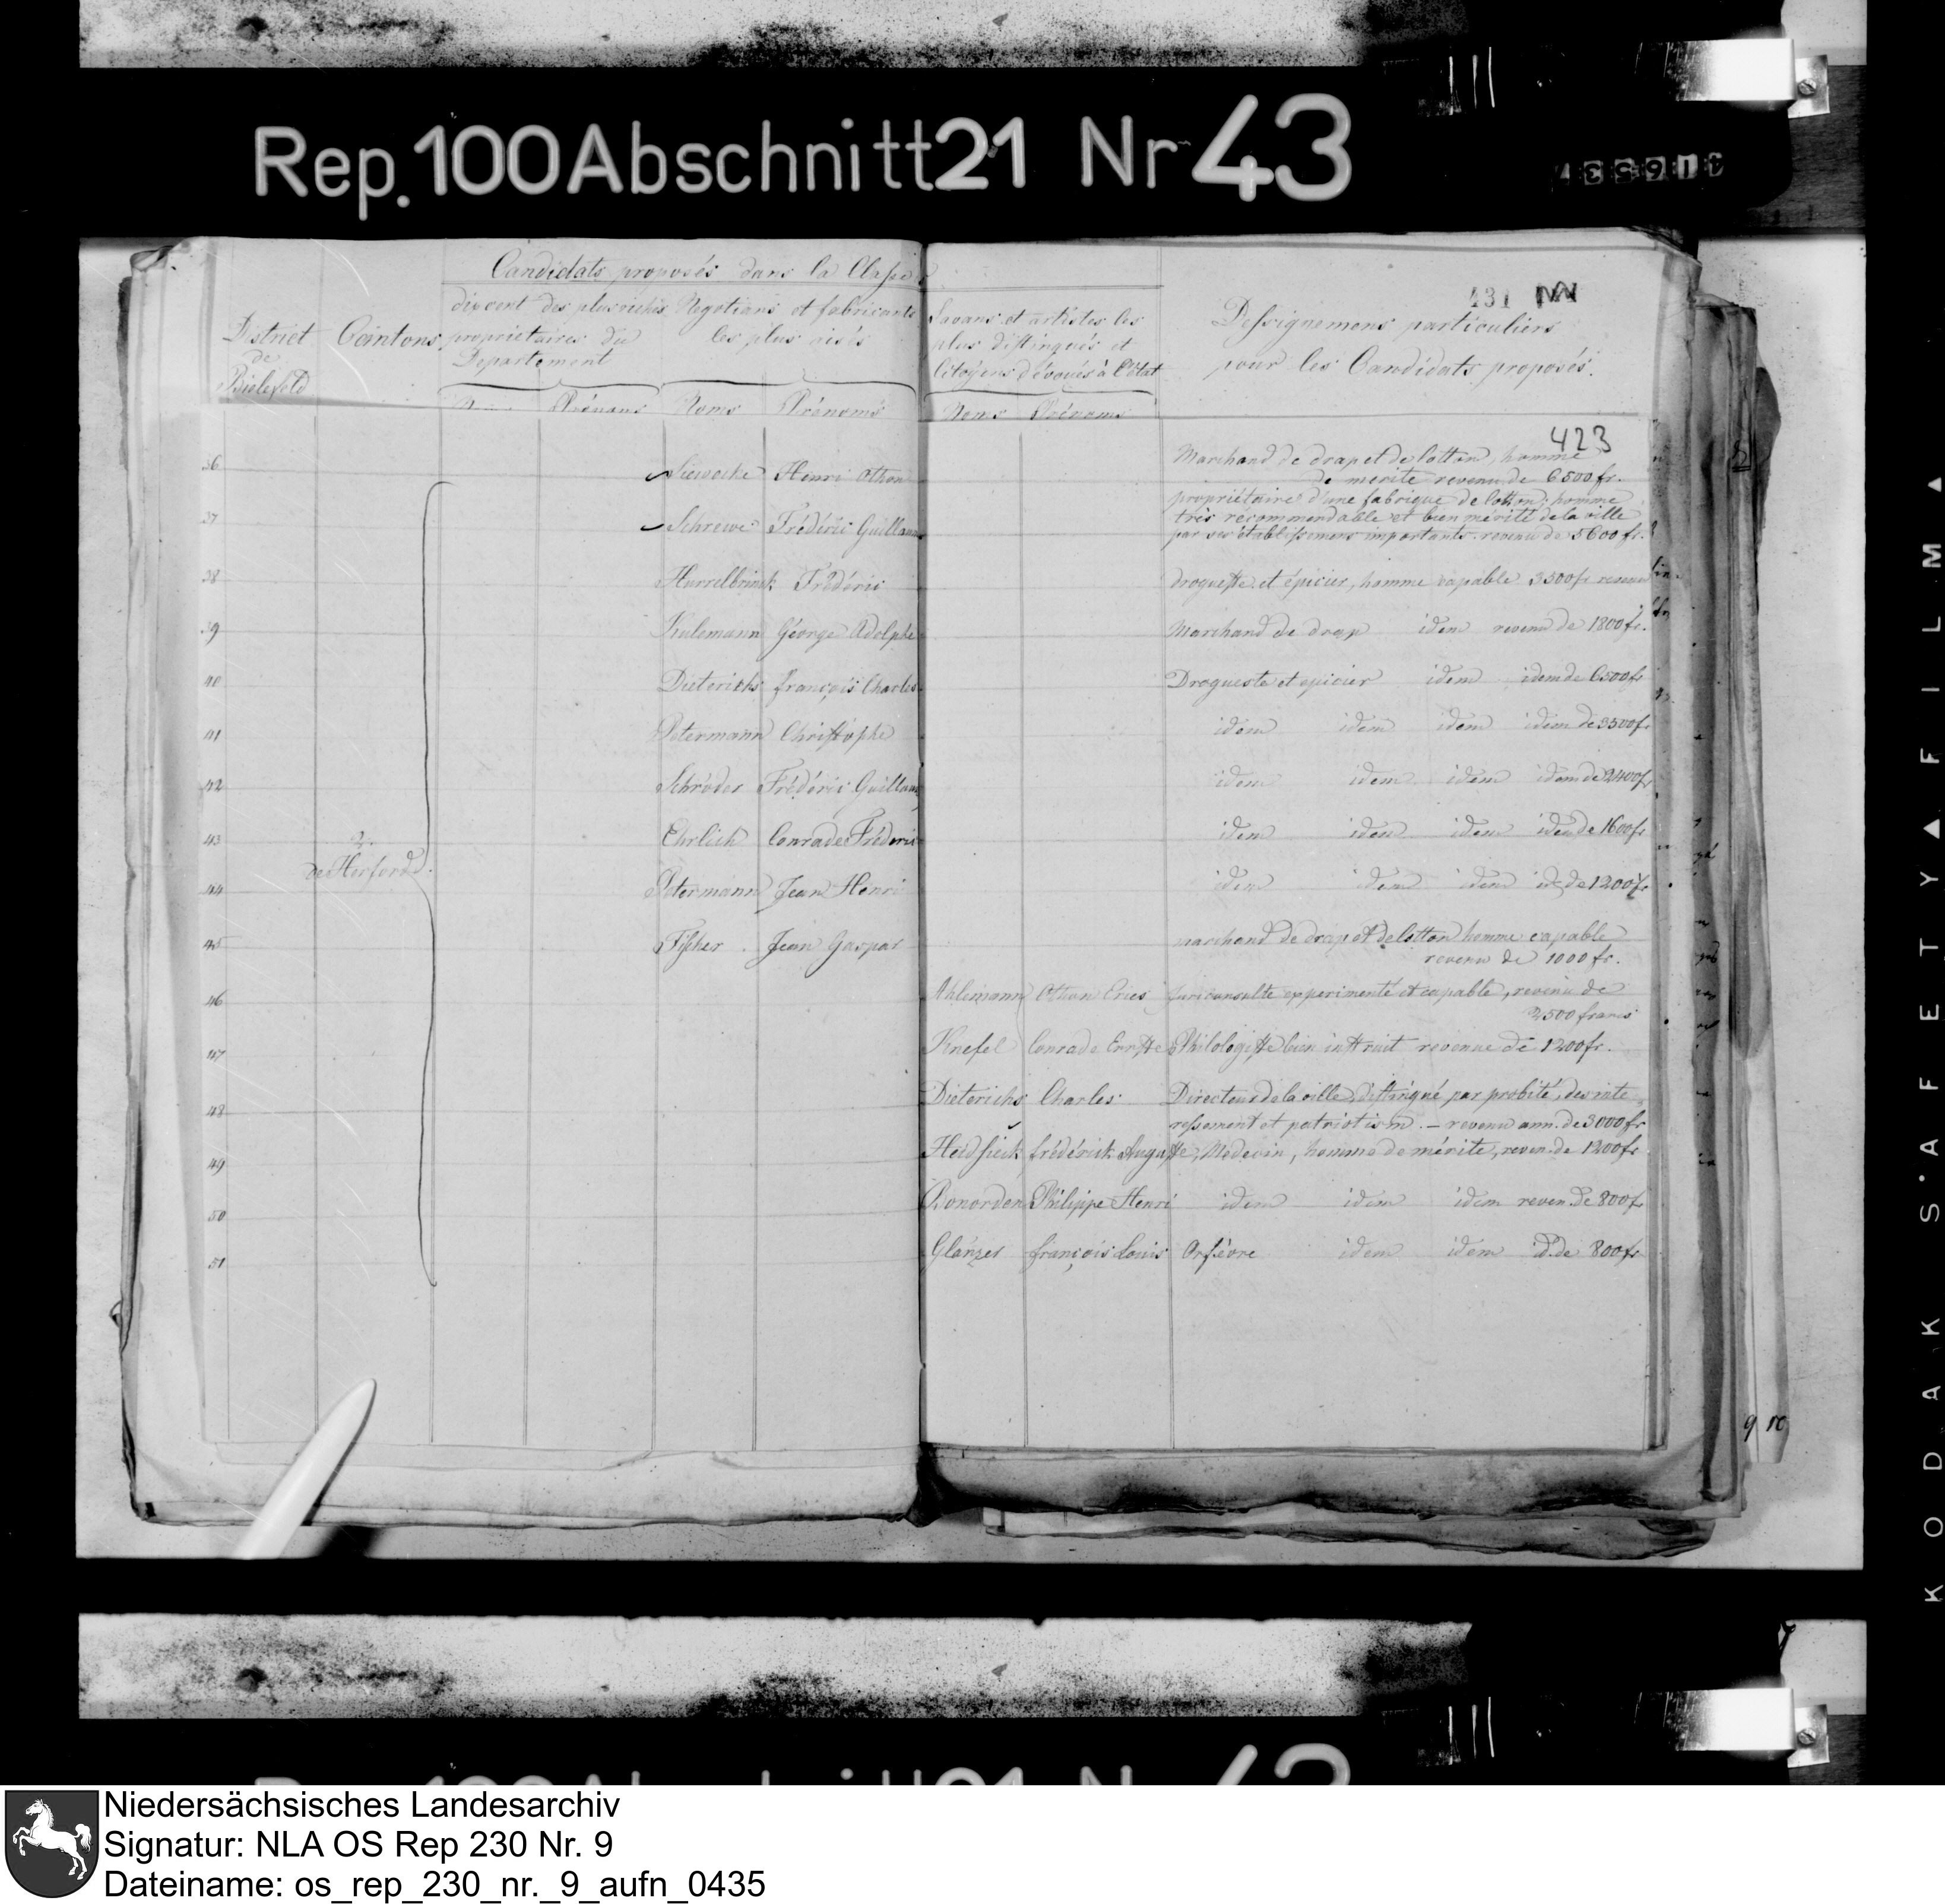 Rep. 100 Abschnitt 21 Nr 43
431
Candidats proposés dans la Classe
District de Bielefeld
Cantons
dixcent des plus riches propriétaires du Departement
Negotians et fabricants les plus aisés
Savans et artistes les plus distingués et Citoyens dévoués à l'état
Dessignemens particuliers pour les Candidats proposés.
Noms Prénoms Noms Prénoms Noms Prénoms
423
2. de Herford
36 Henri Othon Marchand de drap et de Cotton, homme
de mérite revenu de 6500 fr.
37 Schrewe Frédéric Guillaume propriétaire d'une fabrique de Cotton, homme
très recommendable et bien mérité de la ville
par ses établissemens importants. revenu de 5600 fr.
38 Hurrelbrinck Frédéric droguiste et épicier, homme capable 3500 fr revenu
39 Kulemann George Adolphe Marchand de drap idem revenu de 1800 fr.
40 Dieterichs françois Charles Droguiste et epicier idem idem de 6500 fr
41 Petermann Christophe idem idem idem idem de 3500 fr
42 Schröder Frédéric Guillaume idem idem idem idem de 2400 fr
43 Ehrlich Conrade Fréderic idem idem idem idem de 1600 fr
44 Petermann Jean Henri idem idem idem id. de 1200 fr
45 Fischer Jean Gaspar marchand de drap et de Cotton homme capable
revenu de 1000 fr.
46 Othon Juriconsulte experimenté et capable, revenu de
2500 francs
47 Knefel Conrade Ernste Philologiste bien instruit revenue de 1200 fr.
48 Dieterichs Charles Directeur de la ville, distingué par probité, desinte
ressement et patriotism. — revenu ann. de 3000 fr
49 Heidsieck frédérick Auguste, Médecin, homme de mérite, reven. de 1200 fr
50 Bonorden Philippe Henri idem idem idem reven. de 800 fr
51 Glänzer françois Louis Orfèvre idem idem id. de 800 fr
KODAK SAFETY FILM
Niedersächsisches Landesarchiv
Signatur: NLA OS Rep 230 Nr. 9
Dateiname: os_rep_230_nr._9_aufn_0435